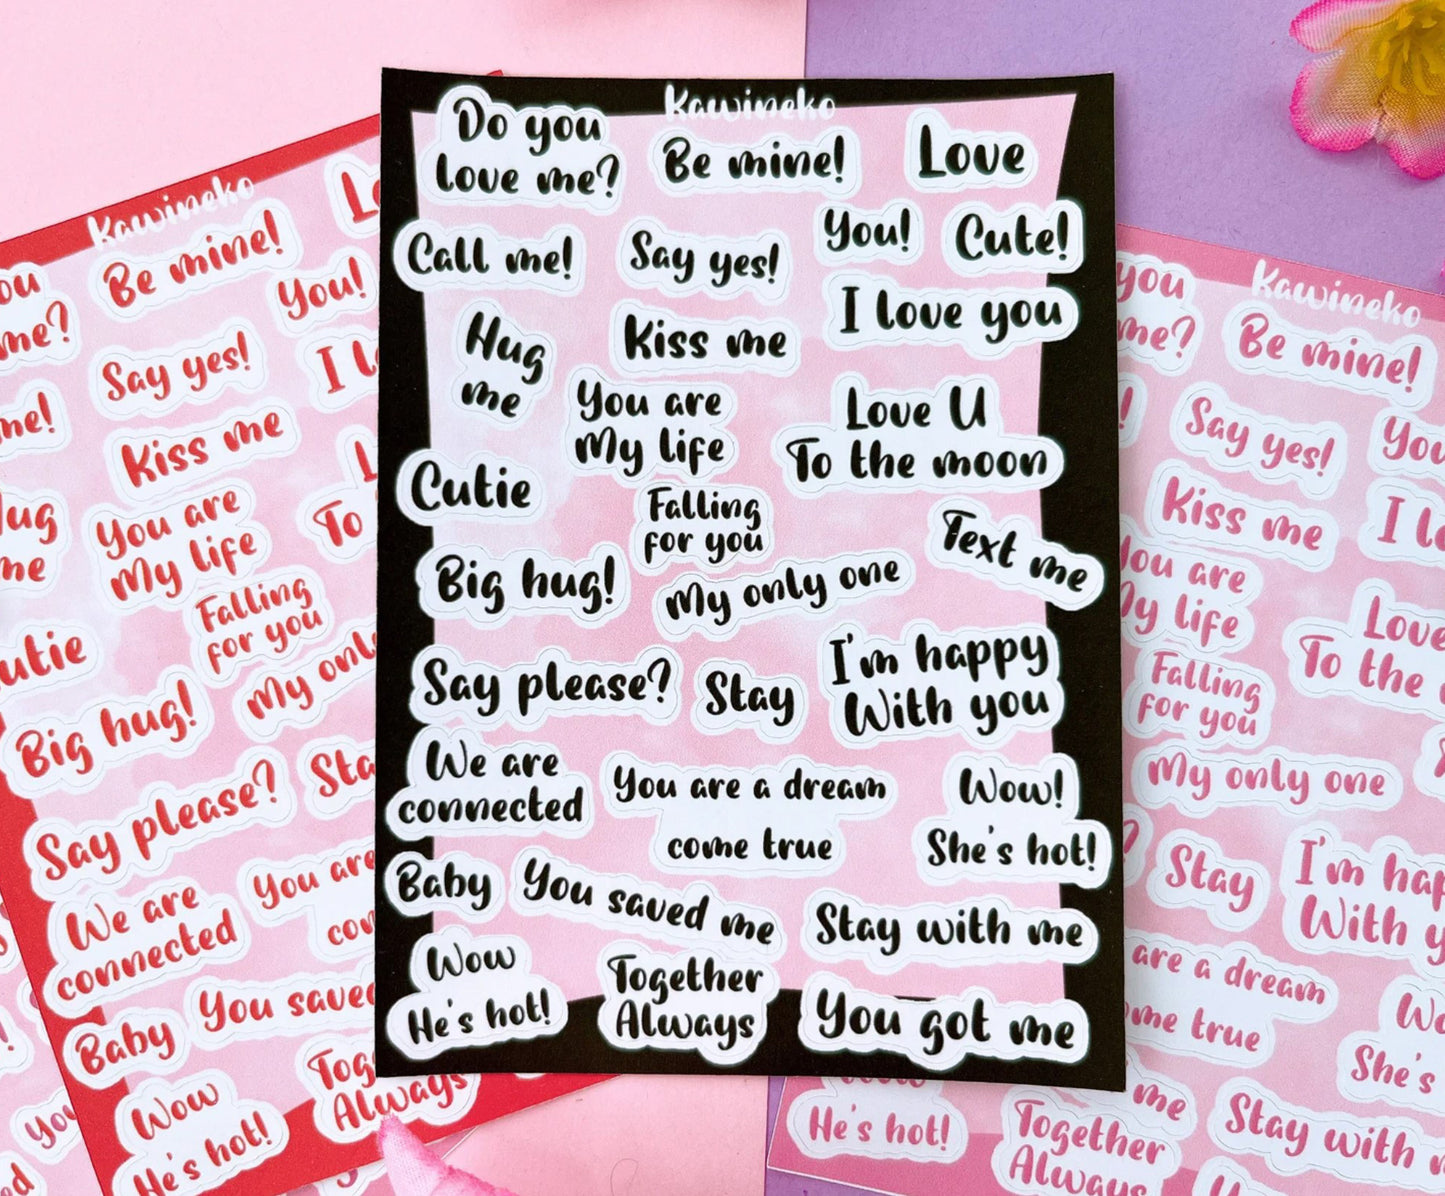 Kawineko
Do you
love me?
Be mine!
Love
You!
Cute!
Call me!
Say yes!
I love you
Hug
me
Kiss me
You are
My life
Love U
To the moon
Cutie
Falling
for you
Text me
Big hug!
My only one
Say please?
Stay
I'm happy
With you
We are
connected
You are a dream
come true
Wow!
She's hot!
Baby
You saved me
Stay with me
Wow
He's hot!
Together
Always
You got me
Kawineko
Be mine!
You!
me?
Say yes!
me!
Kiss me
You are
My life
To
me
Falling
for you
Big hug!
My only
Say please?
We are
connected
You are
Baby
You saved
Together
Always
Wow
He's hot!
you
Kawineko
you
me?
Be mine!
Say yes!
Kiss me
You are
My life
Love
To the
Falling
for you
My only one
Stay
I'm
With
are a dream
come true
She's
me
He's hot!
Stay with
Together
Always